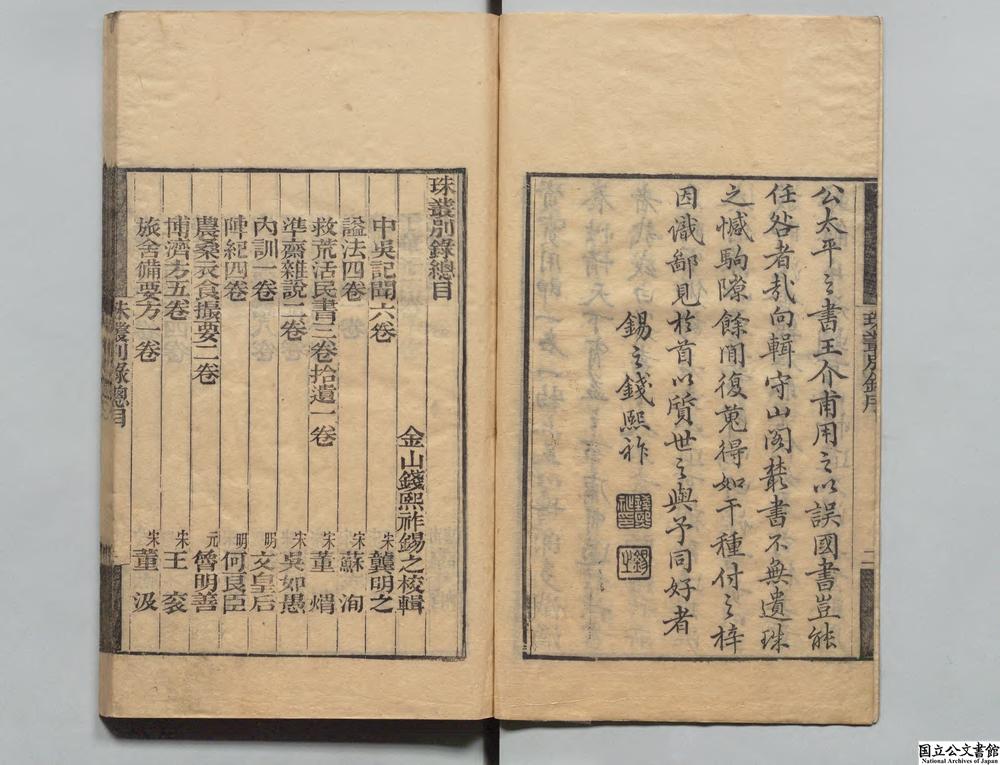 公太平之書王介甫用之以誤國書豈能
任咎者哉向輯守山閣叢書不無遺珠
之憾駒隙餘閒復蒐得如干種付之梓
因識鄙見於首以質世之與予同好者
錫之錢熙祚
錢熙祚印
錫之
珠叢別錄序
二
珠叢別錄總目
金山錢熙祚錫之校輯
中吳記聞六卷 宋 龔明之
諡法四卷 宋 蘇洵
救荒活民書三卷拾遺一卷 宋 董煟
準齋雜說二卷 宋 吳如愚
內訓一卷 明 文皇后
陣紀四卷 明 何良臣
農桑衣食撮要二卷 元 魯明善
博濟方五卷 宋 王袞
旅舍備要方一卷 宋 董汲
珠叢別錄總目
一
国立公文書館
National Archives of Japan